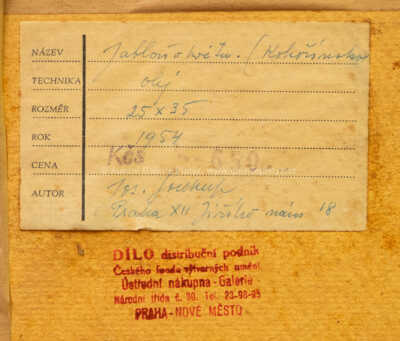 NÁZEV Jabloň v květu. (Kokořínsko)
TECHNIKA olej
ROZMĚR 25 x 35
ROK 1954
CENA Kčs 650.-
AUTOR Soukup
Praha XII Jiřího nám 18
DÍLO distribuční podnik
Českého fondu výtvarných umění
Ústřední nákupna - Galerie
Národní třída č. 30. Tel. 23-98-95
PRAHA - NOVÉ MĚSTO